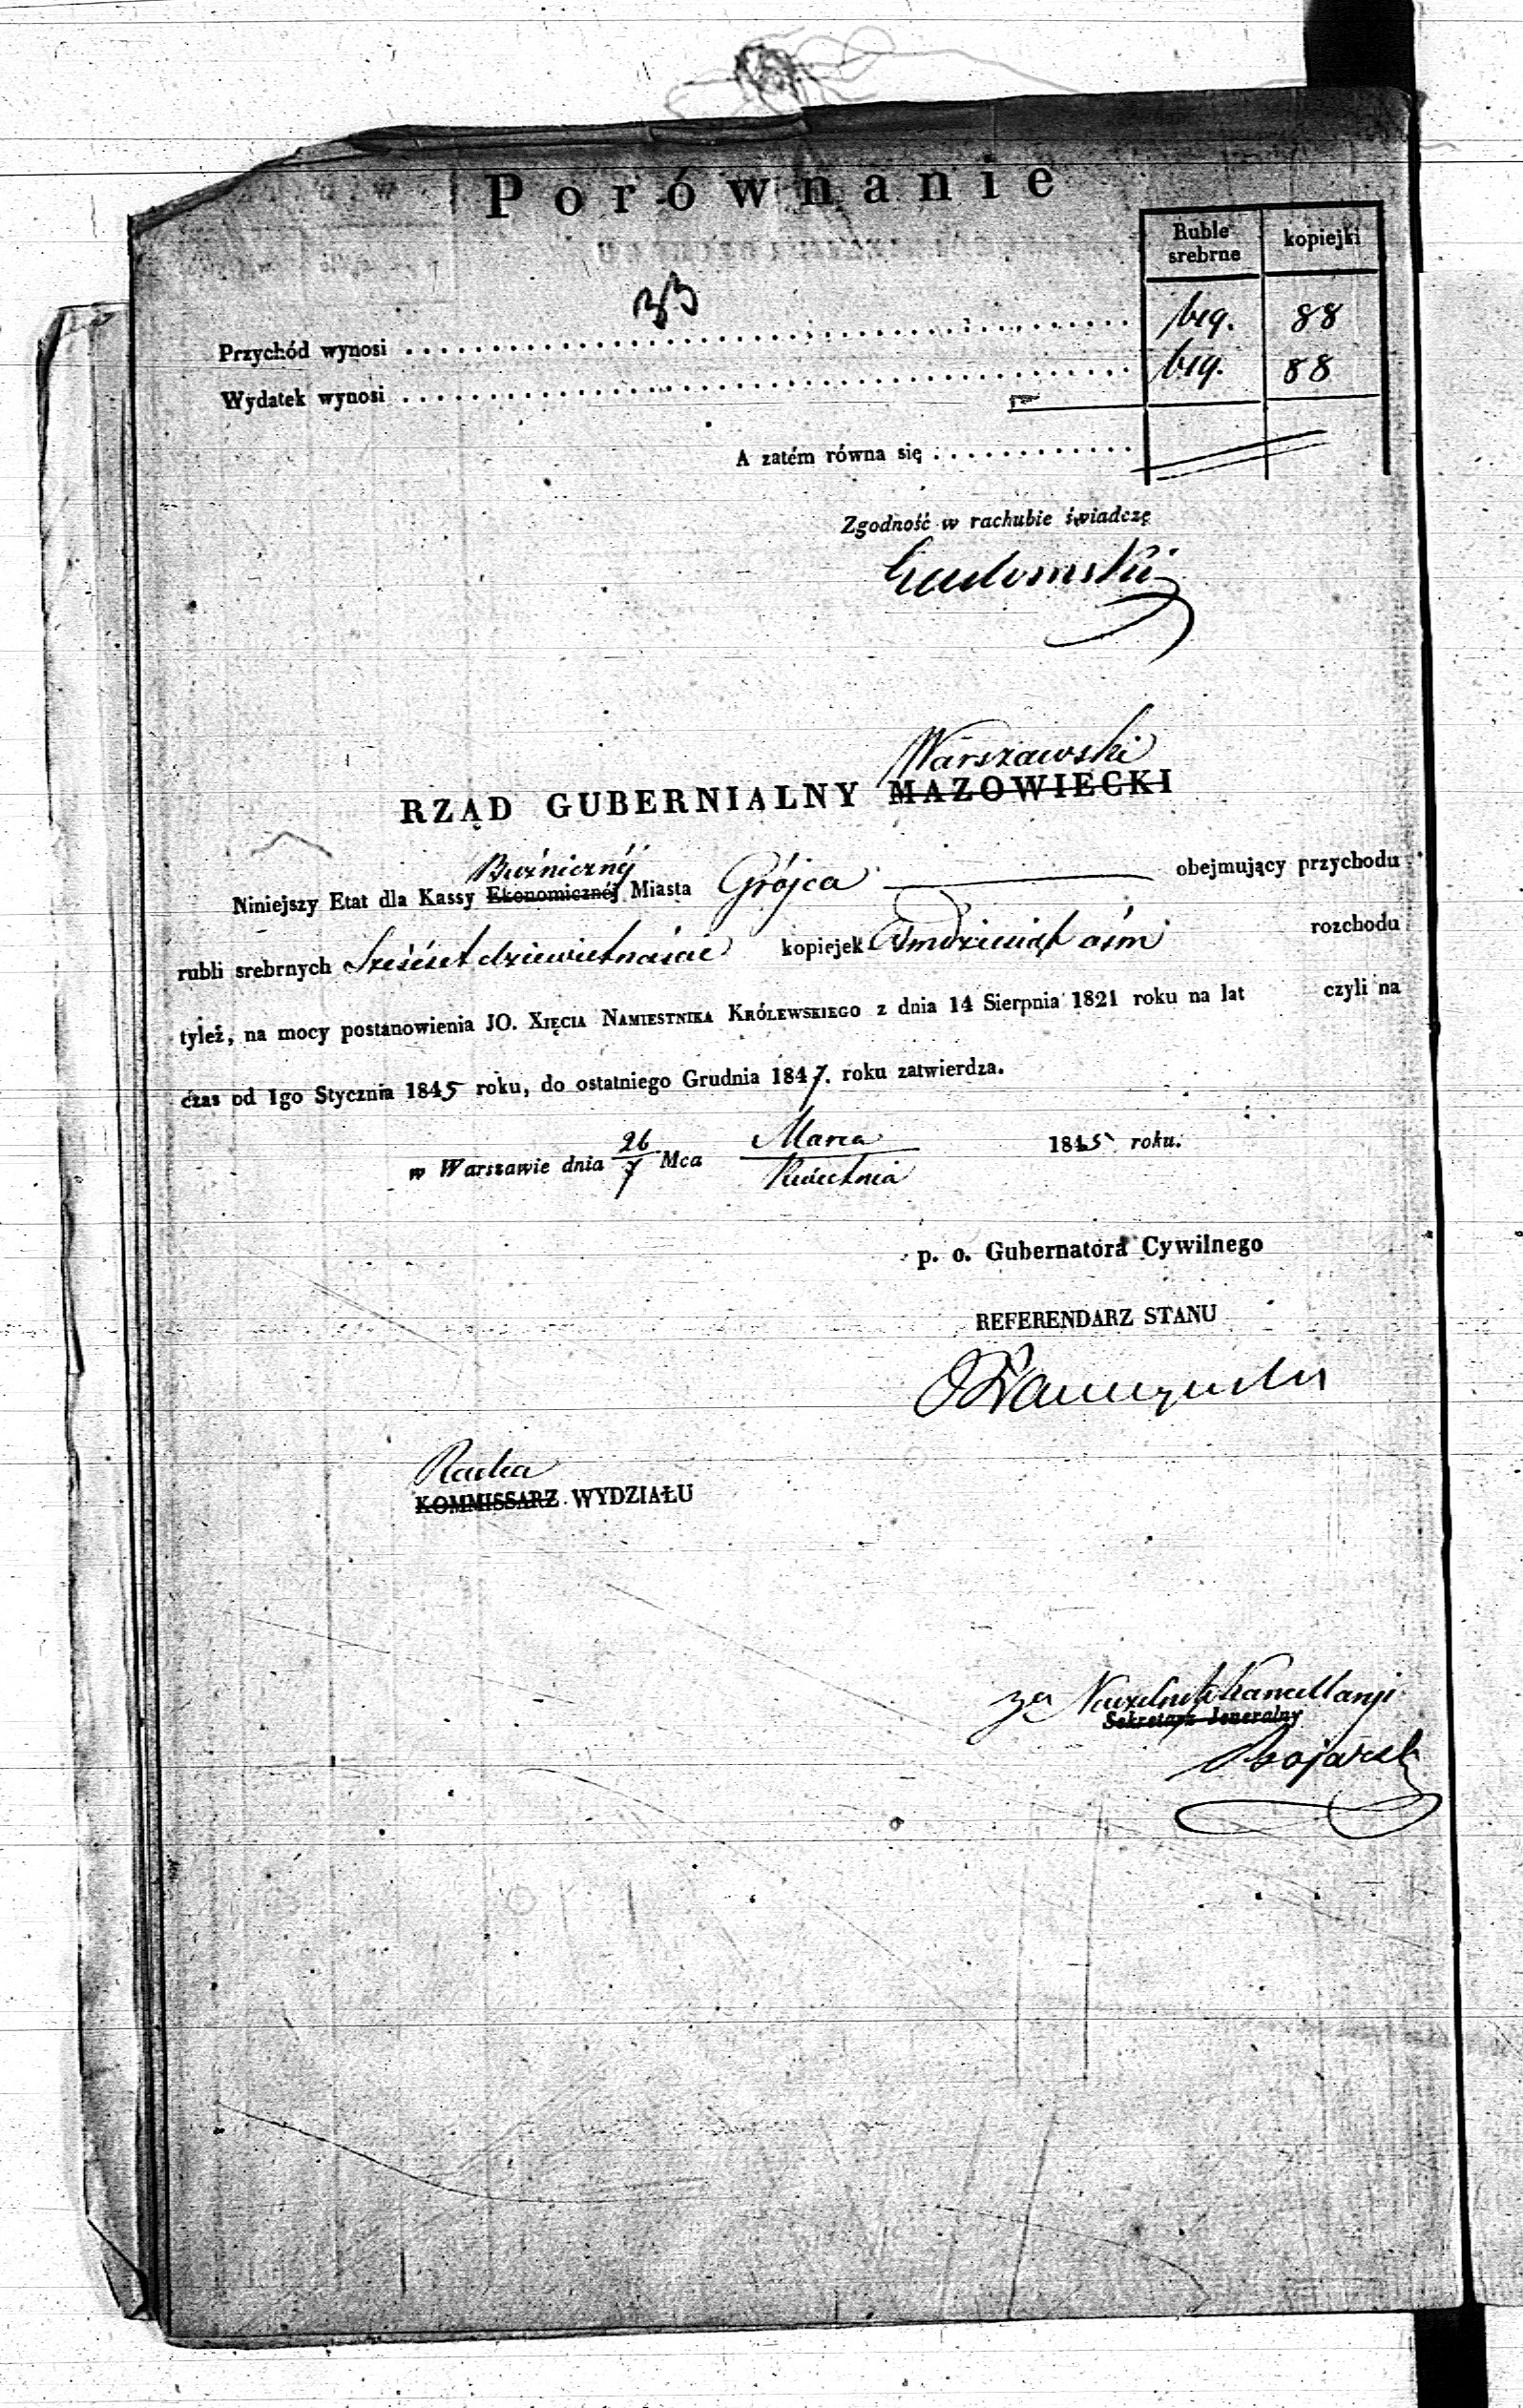 Porównanie
Ruble srebrne kopiejki
33
Przychód wynosi 619. 88
Wydatek wynosi 619. 88
A zatém równa się
Zgodność w rachubie świadczę
Warszawski
RZĄD GUBERNIALNY MAZOWIECKI
Bużniczny
Niniejszy Etat dla Kassy Ekonomicznéj Miasta Grójca obejmujący przychodu
rubli srebrnych Sześćset dziewietnaście kopiejek Osmdziesiąt ośm rozchodu
tyleż, na mocy postanowienia JO. Xięcia Namiestnika Królewskiego z dnia 14 Sierpnia 1821 roku na lat czyli na
czas od 1go Stycznia 1845 roku, do ostatniego Grudnia 1847. roku zatwierdza.
w Warszawie dnia 26/7 Mca Marca/Kwietnia 1845 roku.
p. o. Gubernatora Cywilnego
REFERENDARZ STANU
Radca
KOMMISSARZ WYDZIAŁU
za Naczelnika Kancellaryi
Sekretarz Jeneralny